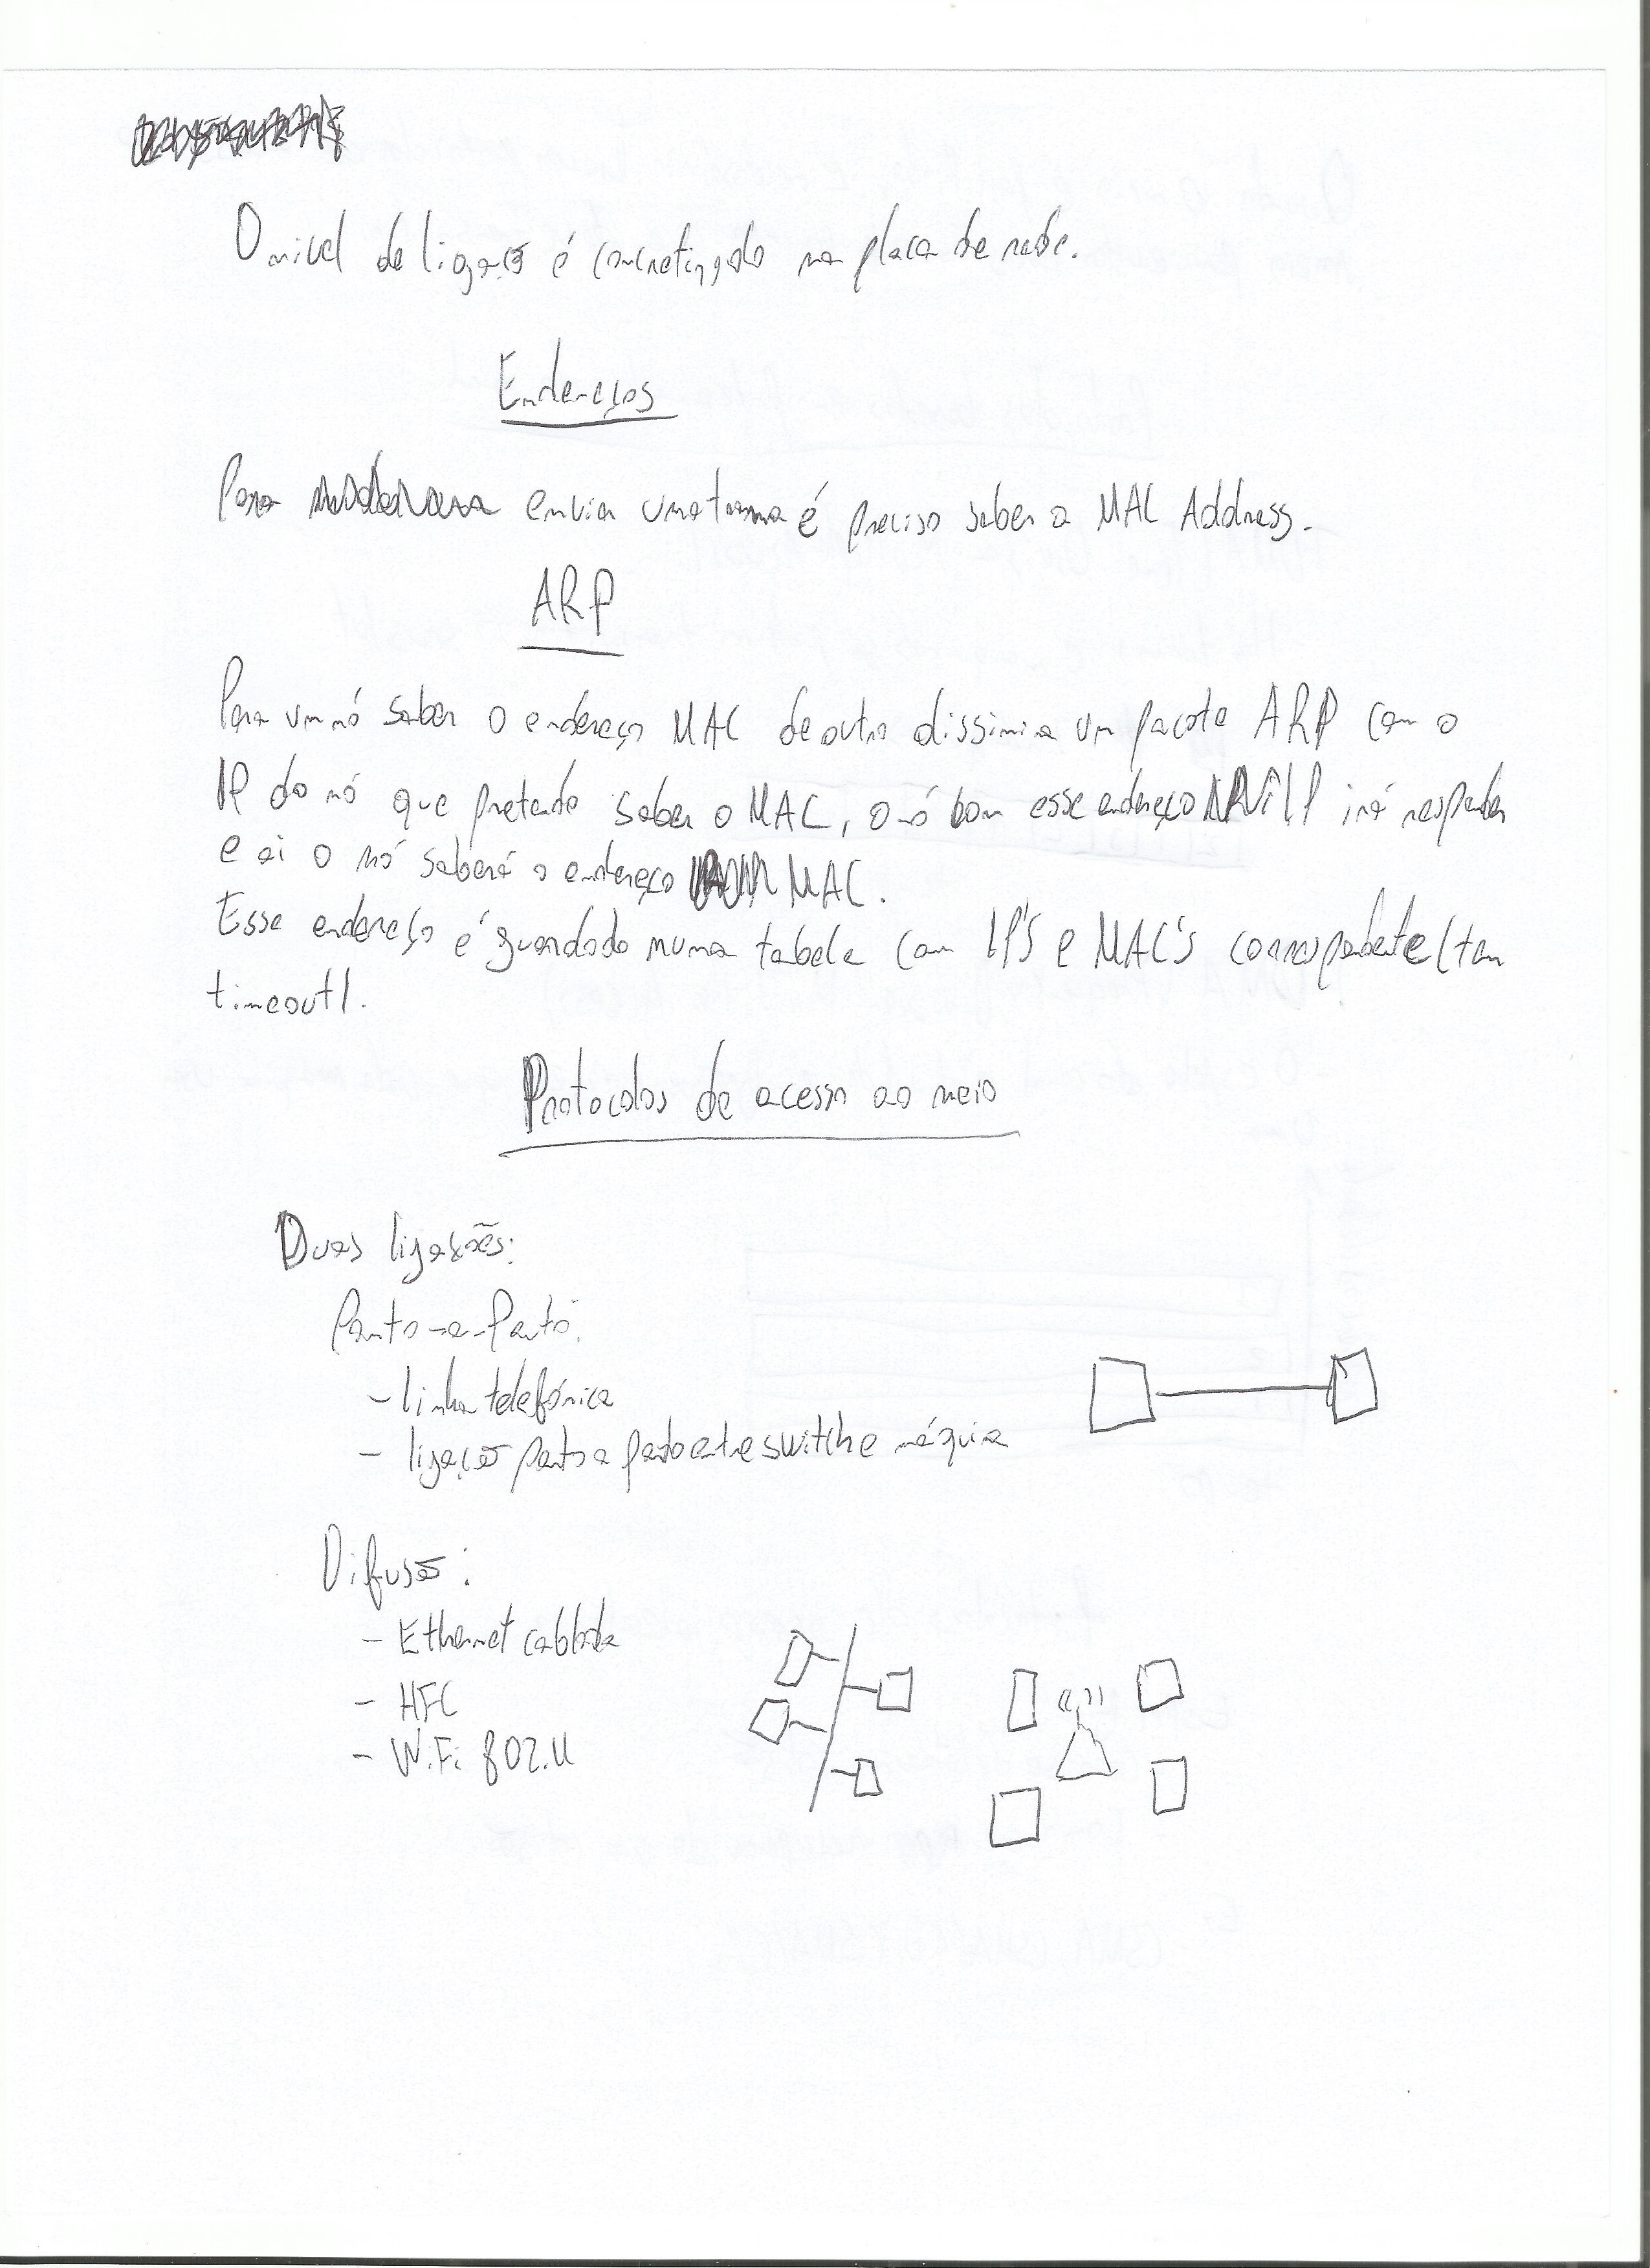 O nivel de ligação é concretizado na placa de rede.
Endereços
Para enviar uma trama é preciso saber o MAC Address.
ARP
Para um nó saber o endereço MAC de outro dissimina um pacote ARP com o
IP do nó que pretende saber o MAC, o nó com esse endereço IP irá responder
e ai o nó saberá o endereço MAC.
Esse endereço é guardado numa tabela com IP's e MAC's correspondente (tem
timeout).
Protocolos de acesso ao meio
Duas ligações:
Ponto-a-Ponto:
- linha telefónica
- ligação ponto a ponto entre switch e máquia
Difusão:
- Ethernet cablada
- HFC
- WiFi 802.11